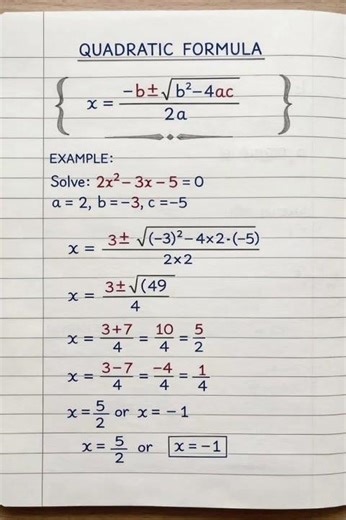 QUADRATIC FORMULA
x = (-b ± √(b² - 4ac)) / 2a
EXAMPLE:
Solve: 2x² - 3x - 5 = 0
a = 2, b = -3, c = -5
x = (3 ± √((-3)² - 4×2·(-5))) / 2×2
x = (3 ± √(49) / 4
x = (3+7)/4 = 10/4 = 5/2
x = (3-7)/4 = -4/4 = 1/4
x = 5/2 or x = -1
x = 5/2 or x = -1